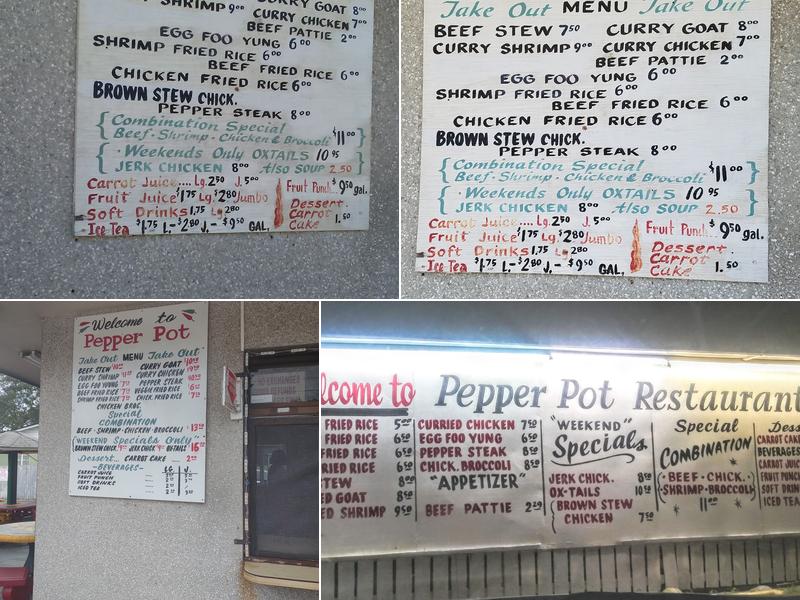 SHRIMP 9⁰⁰ CURRY GOAT 8⁰⁰
CURRY CHICKEN 7⁰⁰
BEEF PATTIE 2⁰⁰
EGG FOO YUNG 6⁰⁰
SHRIMP FRIED RICE 6⁰⁰
BEEF FRIED RICE 6⁰⁰
CHICKEN FRIED RICE 6⁰⁰
BROWN STEW CHICK.
PEPPER STEAK 8⁰⁰
{ Combination Special
Beef-Shrimp-Chicken & Broccoli $11⁰⁰ }
{ · Weekends Only OXTAILS 10⁹⁵
JERK CHICKEN 8⁰⁰ Also SOUP 2.50 }
Carrot Juice.... Lg. 2⁵⁰ J. 5⁰⁰
Fruit Juice $1⁷⁵ Lg. $2⁸⁰ Jumbo
Soft Drinks 1.75 Lg 2⁸⁰
Ice Tea $1.75 L.-$2⁸⁰ J.-$9⁵⁰ GAL.
Fruit Punch $9⁵⁰ gal.
Dessert
Carrot
Cake 1.50
Take Out MENU Take Out
BEEF STEW 7⁵⁰ CURRY GOAT 8⁰⁰
CURRY SHRIMP 9⁰⁰ CURRY CHICKEN 7⁰⁰
BEEF PATTIE 2⁰⁰
EGG FOO YUNG 6⁰⁰
SHRIMP FRIED RICE 6⁰⁰
BEEF FRIED RICE 6⁰⁰
CHICKEN FRIED RICE 6⁰⁰
BROWN STEW CHICK.
PEPPER STEAK 8⁰⁰
{ Combination Special
Beef-Shrimp-Chicken & Broccoli $11⁰⁰ }
{ · Weekends Only OXTAILS 10⁹⁵
JERK CHICKEN 8⁰⁰ Also SOUP 2.50 }
Carrot Juice.... Lg. 2⁵⁰ J. 5⁰⁰
Fruit Juice $1⁷⁵ Lg. $2⁸⁰ Jumbo
Soft Drinks 1.75 Lg 2⁸⁰
Ice Tea $1.75 L.-$2⁸⁰ J.-$9⁵⁰ GAL.
Fruit Punch $9⁵⁰ gal.
Dessert
Carrot
Cake 1.50
Welcome to
Pepper Pot
Take Out MENU Take Out
BEEF STEW CURRY GOAT
CURRY SHRIMP CURRY CHICKEN
EGG FOO YUNG PEPPER STEAK
BEEF FRIED RICE VEGGIE FRIED RICE
SHRIMP FRIED RICE CHICKEN FRIED RICE
CHICKEN BROC.
Special
COMBINATION
BEEF-SHRIMP-CHICKEN-BROCCOLI
"WEEKEND Specials Only"
BROWN STEW CHICK. JERK CHICK. OXTAILS
Dessert... CARROT CAKE
-BEVERAGES-
LG J.
CARROT JUICE
FRUIT PUNCH
SOFT DRINKS
ICED TEA
lcome to Pepper Pot Restaurant
FRIED RICE 5⁵⁰
FRIED RICE 6⁵⁰
FRIED RICE 6⁵⁰
RIED RICE 6⁵⁰
STEW 8⁵⁰
ED GOAT 8⁵⁰
ED SHRIMP 9⁵⁰
CURRIED CHICKEN 7⁵⁰
EGG FOO YUNG 6⁵⁰
PEPPER STEAK 8⁵⁰
CHICK. BROCCOLI 8⁵⁰
"APPETIZER"
BEEF PATTIE 2²⁹
"WEEKEND"
Specials
JERK CHICK. 8⁵⁰
OX-TAILS 10⁵⁰
BROWN STEW
CHICKEN 7⁵⁰
Special
COMBINATION
·BEEF·CHICK.·
·SHRIMP·BROCCOLI
11⁰⁰
Dess
CARROT CAKE
BEVERAGES
CARROT JUIC
FRUIT PUNCH
SOFT DRIN
ICED TEA